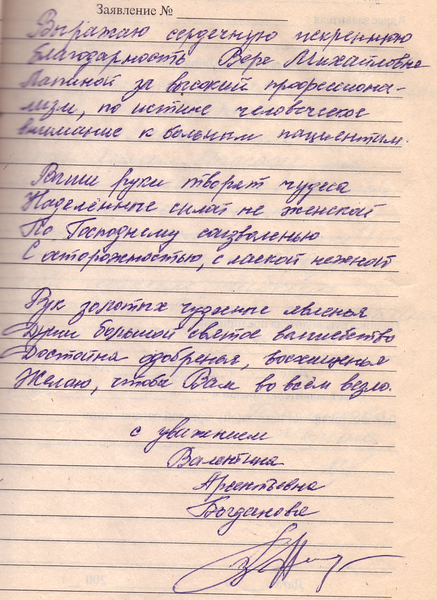 Заявление № ____________
Выражаю сердечную искреннюю
благодарность Вере Михайловне
Лапиной за высокий профессиона-
лизм, по истине человеческое
внимание к больным пациентам.
Ваши руки творят чудеса
Наделённые силой не женской
По Господнему соизволенью
С осторожностью, с лаской нежной
Рук золотых чудесные явленья
Души большой святое волшебство
Достойна одобренья, восхищенья
Желаю, чтобы Вам во всём везло.
с уважением
Валентина
Арсентьевна
Богданова